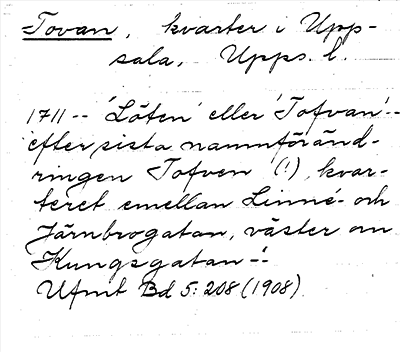 Tovan, kvarter i Upp-
sala, Upps. l.
1711 -- 'Löten' eller 'Tofvan' --
efter sista namnföränd-
ringen Tofven (!), kvar-
teret emellan Linné- och
Järnbrogatan, väster om
Kungsgatan --
Ufmt Bd 5: 208 (1908)